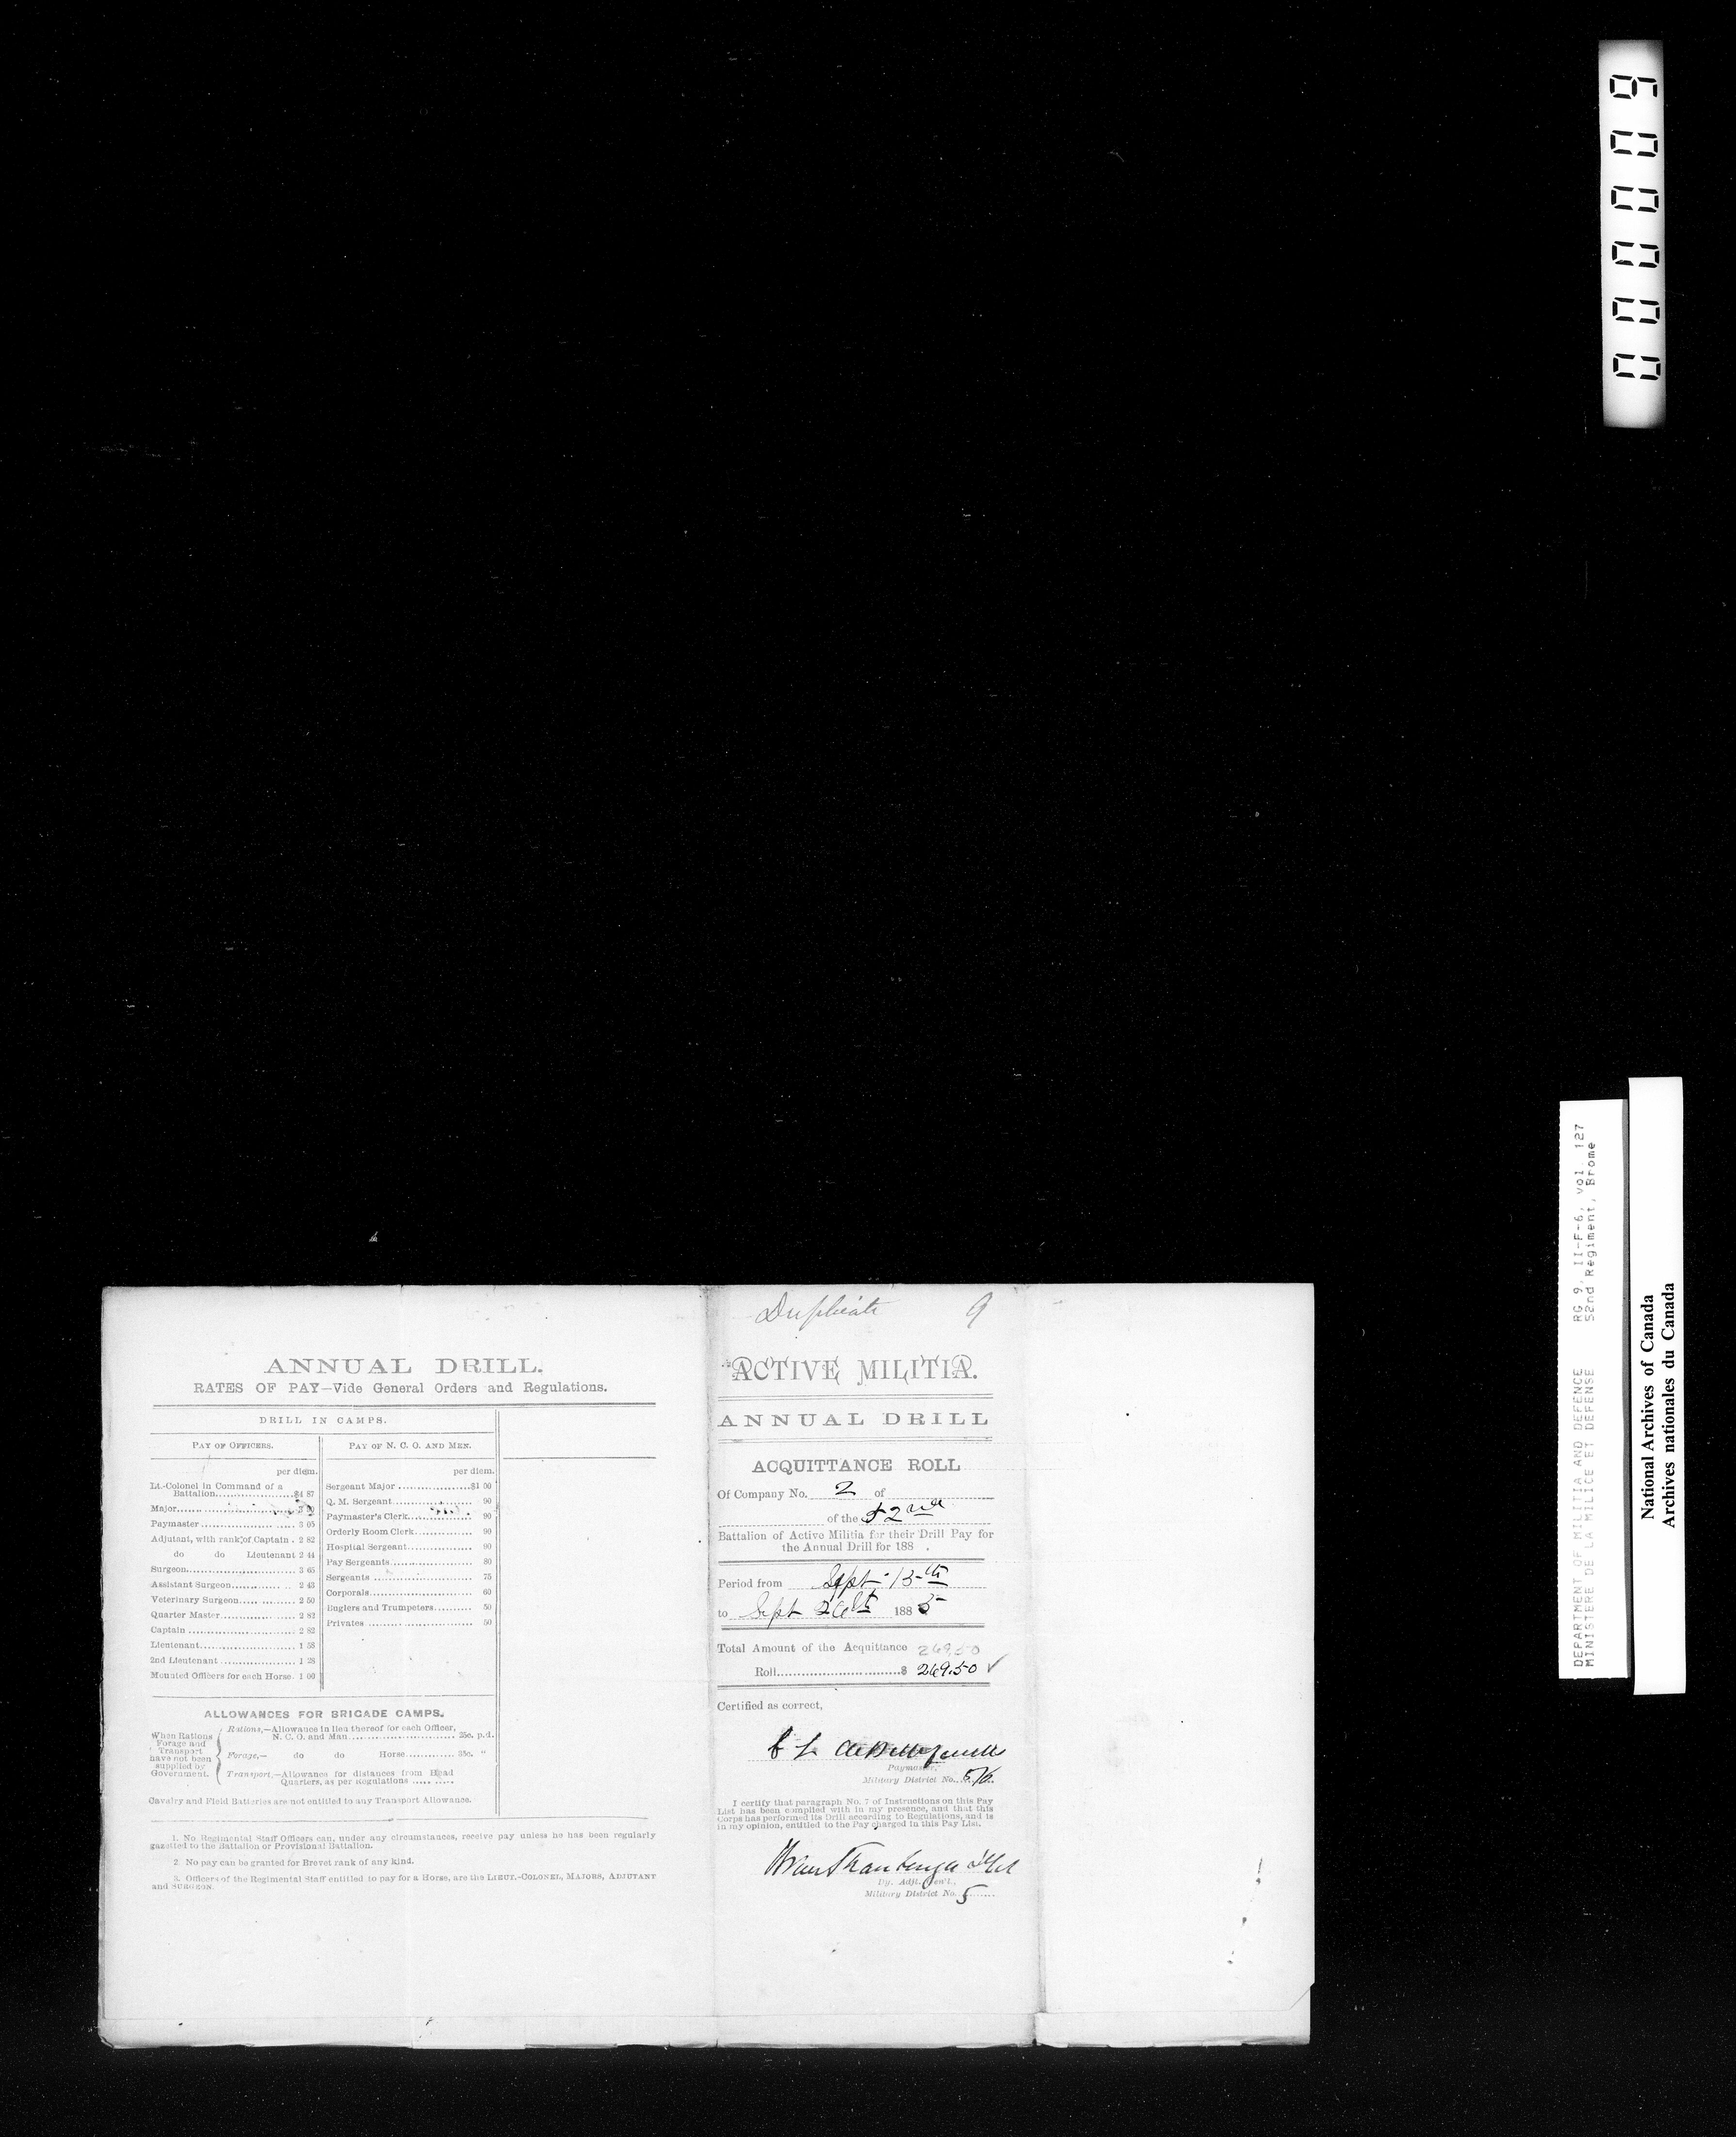 000009
DEPARTMENT OF MILITIA AND DEFENCE RG 9, II-F-6, vol. 127
MINISTERE DE LA MILICE ET DEFENSE 52nd Regiment, Brome
National Archives of Canada
Archives nationales du Canada
ANNUAL DRILL.
RATES OF PAY—Vide General Orders and Regulations.
DRILL IN CAMPS.
PAY OF OFFICERS.
per diem.
Lt.-Colonel in Command of a
Battalion $4 87
Major
Paymaster 3 65
Adjutant, with rank of Captain 2 82
do do Lieutenant 2 44
Surgeon 3 65
Assistant Surgeon 2 43
Veterinary Surgeon 2 50
Quarter Master 2 82
Captain 2 82
Lieutenant 1 58
2nd Lieutenant 1 28
Mounted Officers for each Horse 1 00
PAY OF N. C. O. AND MEN.
per diem.
Sergeant Major $1 00
Q. M. Sergeant 90
Paymaster's Clerk 90
Orderly Room Clerk 90
Hospital Sergeant 90
Pay Sergeants 80
Sergeants 75
Corporals 60
Buglers and Trumpeters 50
Privates 50
ALLOWANCES FOR BRIGADE CAMPS.
When Rations
Forage and
Transport
have not been
supplied by
Government.
Rations,—Allowance in lieu thereof for each Officer,
N. C. O. and Man 25c. p.d.
Forage,— do do Horse 35c. "
Transport,—Allowance for distances from Head
Quarters, as per Regulations
Cavalry and Field Batteries are not entitled to any Transport Allowance.
1. No Regimental Staff Officers can, under any circumstances, receive pay unless he has been regularly
gazetted to the Battalion or Provisional Battalion.
2. No pay can be granted for Brevet rank of any kind.
3. Officers of the Regimental Staff entitled to pay for a Horse, are the LIEUT.-COLONEL, MAJORS, ADJUTANT
and SURGEON.
Duplicate 9
ACTIVE MILITIA.
ANNUAL DRILL
ACQUITTANCE ROLL
Of Company No. 2 of
of the 52nd
Battalion of Active Militia for their Drill Pay for
the Annual Drill for 188 .
Period from Sept 15th
to Sept 26th 1885
Total Amount of the Acquittance 269.50
Roll $ 269.50 ✓
Certified as correct,
Paymaster,
Military District No. 5/6
I certify that paragraph No. 7 of Instructions on this Pay
List has been complied with in my presence, and that this
Corps has performed its Drill according to Regulations, and is
in my opinion, entitled to the Pay charged in this Pay List.
Dy. Adjt. Gen'l.,
Military District No. 5